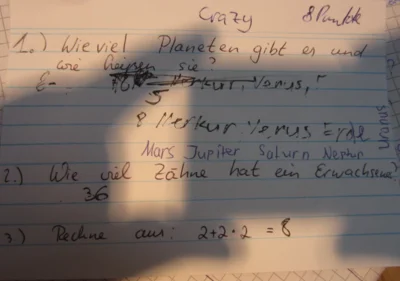 Crazy 8 Punkte
1.) Wie viel Planeten gibt es und
wie heißen sie?
5
8 Merkur Venus Erde
Mars Jupiter Saturn Neptun Uranus
2.) Wie viel Zähne hat ein Erwachsene?
36
3.) Rechne aus: 2+2·2 = 8